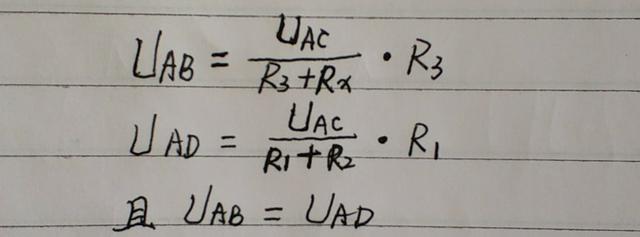 U_AB = U_AC / (R_3 + R_x) · R_3
U_AD = U_AC / (R_1 + R_2) · R_1
且 U_AB = U_AD